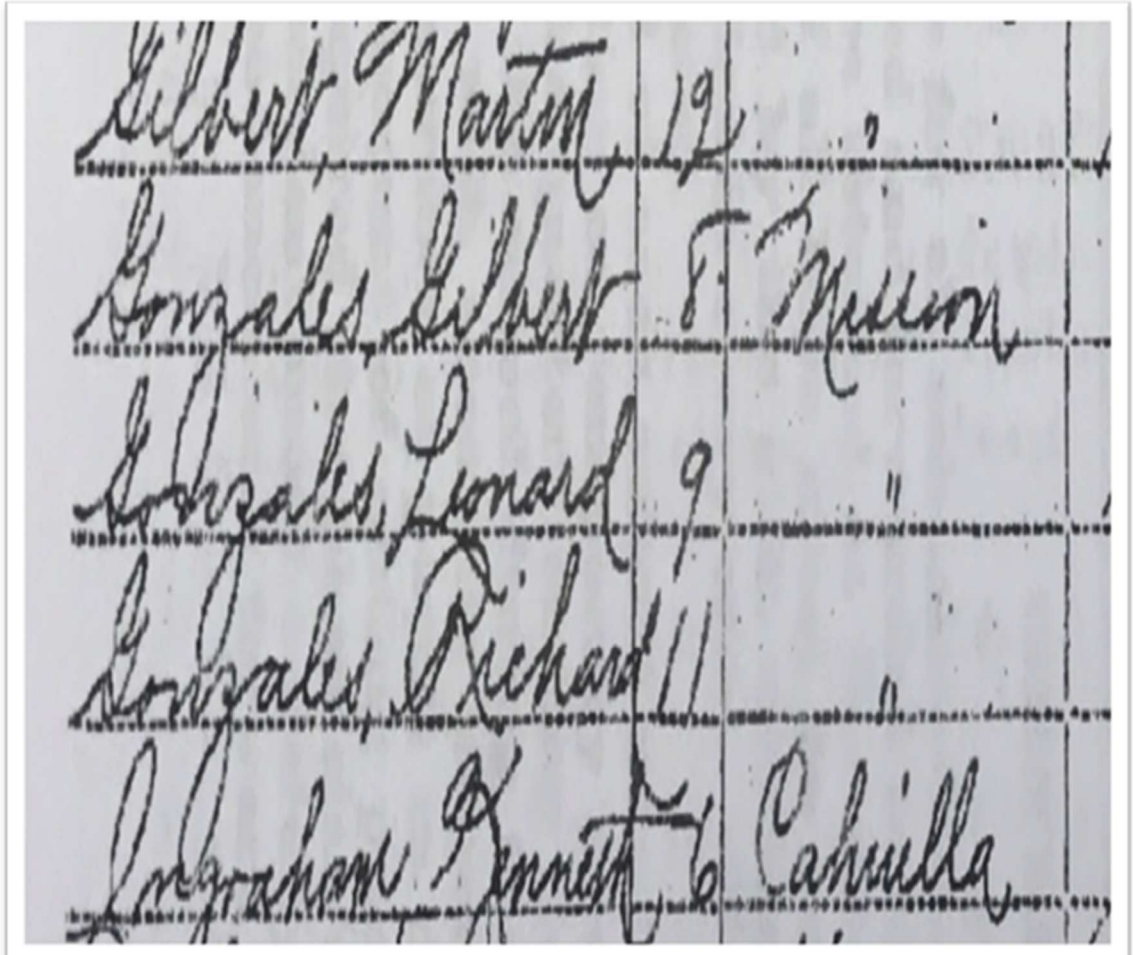 Gilbert, Martin 12 "
Gonzales, Gilbert 8 Mission
Gonzales, Leonard 9 "
Gonzales, Richard 11 "
Ingraham Kenneth 6 Cahuilla